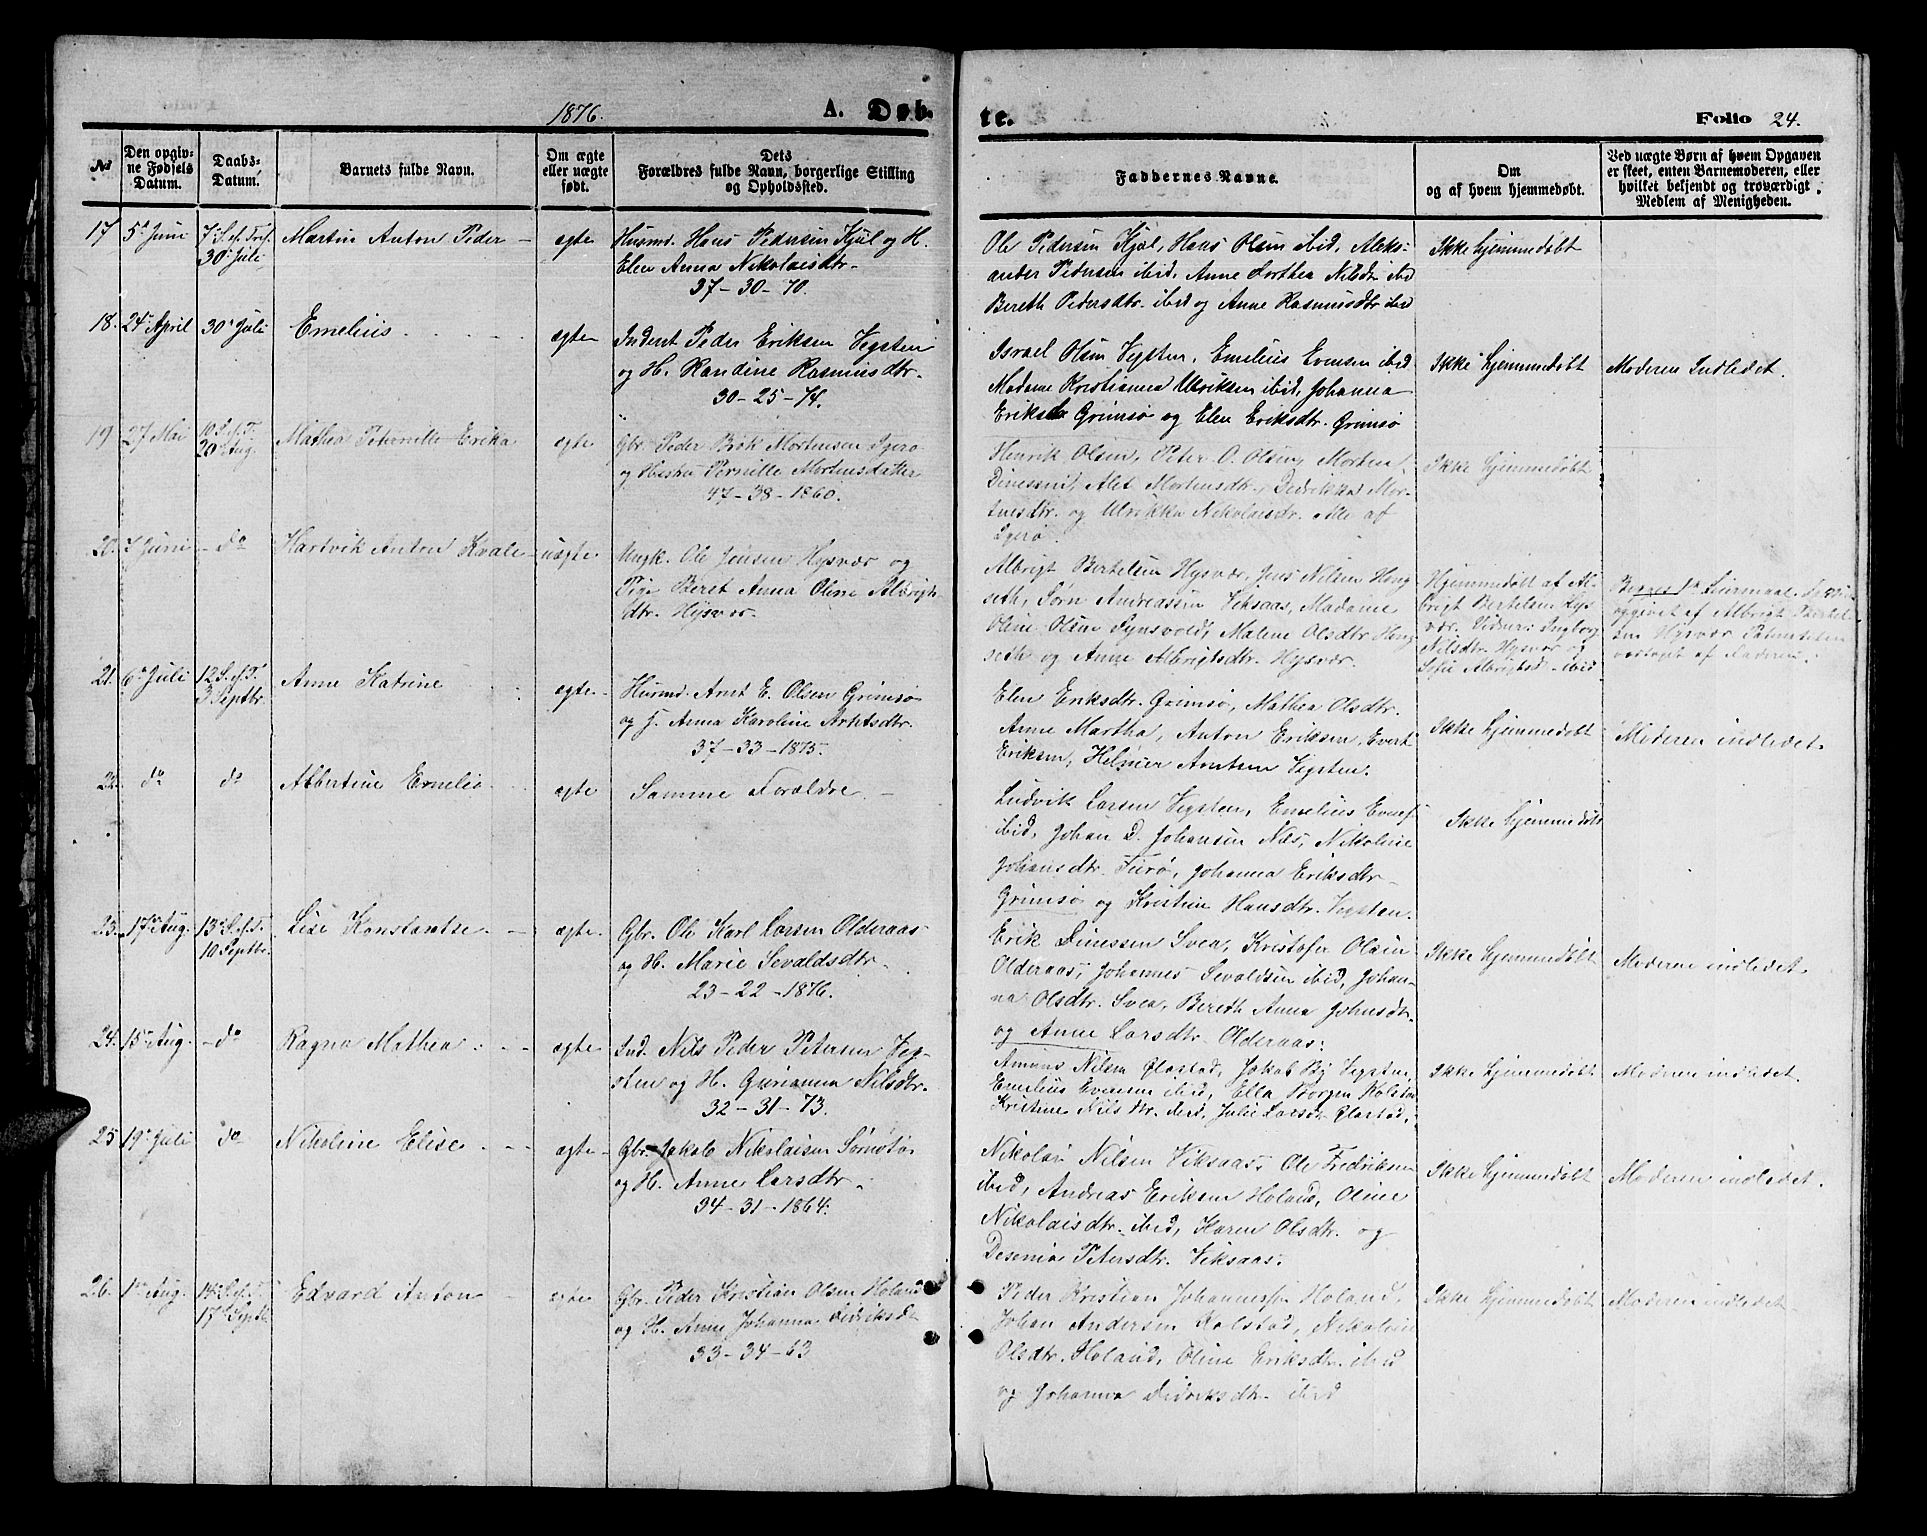 1876.
A. Døb-
te.
Folio 24.
No
Den opgiv-
ne Fødsels
Datum.
Daabs-
Datum.
Barnets fulde Navn.
Om ægte
eller uægte
født.
Dets
Forældres fulde Navn, borgerlige Stilling
og Opholdssted.
Faddernes Navne.
Om
og af hvem hjemmedøbt.
Ved uægte Børn af hvem Opgaven
er skeet, enten Barnemoderen, eller
hvilket bekjendt og troværdigt
Medlem af Menigheden.
17
5te Juni
7 S. ef. Tref.
30 Juli
Martin Anton Peder
ægte
Husmd. Hans Pedersen Kjul og H.
Elen Anna Nikolaisdtr.
37-30-70.
Ole Pedersen Kjøl, Hans Olsen ibid, Aleks-
ander Pedersen ibid, Anne Dorthea Nilsdtr ibid
Bereth Pedersdtr. ibid og Anne Rasmusdtr ibid
Ikke hjemmedøbt
18.
24 April
30 Juli
Emelius
ægte
Inderst Peder Eriksen Vegsten
og H. Randine Rasmusdtr.
30-25-74.
Israel Olsen Vegsten, Emelius Evensen ibid
Madame Kristianna Ulriksen ibid, Johanna
Eriksdtr Grimsø og Elen Eriksdtr. Grimsø
Ikke hjemmedøbt
Moderen Indledet.
19
27 Mai
10 S. e. T.
20 Aug.
Mathea Peternille Erika
ægte
Gbr. Peder Brok Mortensen Ygerø
og Hustru Pernille Mortensdatter
47-38-1860.
Henrik Olsen, Peter O. Olsen, Morten
Dinessen, Alet Mortensdtr., Dedrikka Mor-
tensdtr. og Ulrikka Nikolaisdr. Alle af
Ygerø.
Ikke hjemmedøbt
20.
7 Juni
do
Hartvik Anton Kvale
uægte
Ungk. Ole Jensen Hysvær og
Pige Beret Anna Oline Albrigts-
dtr. Hysvær.
Albrigt Bertelsen Hysvær, Jens Nilsen Heng
seth, Sørn Andreassen Viksaas, Madame
Oline Olsen Synsvold, Malene Olsdtr Heng
seth og Anne Albrigtsdtr. Hysvær.
Hjemmedøbt af Al-
brigt Bertelsen Hys
vær. Vidner: Ingborg
Nilsdtr. Hysvær og
Sofie Albrigtsd. ibid
Begges 1ste Leiermaal
opgivet af Albrigt Bertel-
sen Hysvær. Paterniteten
vedtaget af Faderen.
21.
6 Juli
12 S. ef. T.
3 Septbr.
Anne Katrine
ægte
Husmd. Arnt E. Olsen Grimsø
og H. Anna Karoline Arntsdtr.
37-33-1875.
Elen Eriksdtr. Grimsø, Mathea Olsdtr.
Anne Martha, Anton Eriksen, Evert
Eriksen, Helmer Arntsen Vegsten.
Ikke hjemmedøbt
Moderen indledet.
22.
do
do
Albertine Emelie
ægte
Samme Forældre.
Ludvik Larsen Vegsten, Emelius Evens.
ibid, Johan D. Johansen Næs, Nikoline
Johansdtr. Furø, Johanna Eriksdtr
Grimsø og Kristine Hansdtr. Vegsten.
Ikke hjemmedøbt
23.
17 Aug.
13 S. ef. T.
10 Septbr.
Lise Konstantse
ægte
Gbr. Ole Karl Larsen Olderaas
og H. Marie Sevaldsdtr
23-22-1876.
Erik Dinessen Svea, Kristofer Olsen
Olderaas, Johannes Sevaldsen ibid, Johan-
na Olsdtr. Svea, Bereth Anna Johnsdtr.
og Anne Larsdtr Olderaas.
Ikke hjemmedøbt
Moderne indledet.
24.
15 Aug.
do
Ragna Mathea
ægte
Ind. Nils Peder Petersen Veg-
sten og H. Gurianna Nilsdtr.
32-31-73.
Amons Nilsen Olastad, Jakob Bj Vegsten,
Emelius Evensen ibid, Ella Borgen Kolstad
Kristine Nilsdtr. ibid, Julie Larsdr Olastad.
Ikke hjemmedøbt
Moderen indledet.
25
19 Juli
do
Nikoline Elise
ægte
Gbr. Jakob Nikolaisen Sømstø
og H. Anne Larsdtr.
34-31-1864.
Nikolai Nilsen Viksaas, Ole Fredriksen
ibid, Andreas Eriksen Holand, Oline
Nikolaisdtr. ibid, Karen Olsdtr. og
Desenia Petersdtr. Viksaas.
Ikke hjemmedøbt
Moderen indledet.
26.
1 Aug.
14 S. ef. T.
17 Septbr
Edvard Anton
ægte
Gbr. Peder Kristian Olsen Holand
og H. Anne Johanna Didriksd
33-34-63
Peder Kristian Johannessen Holand,
Johan Andersen Kolstad, Nikoline
Olsdtr. Holand, Oline Eriksdtr. ibid
og Johanna Didriksdtr. ibid
Ikke hjemmedøbt
Moderen indledet